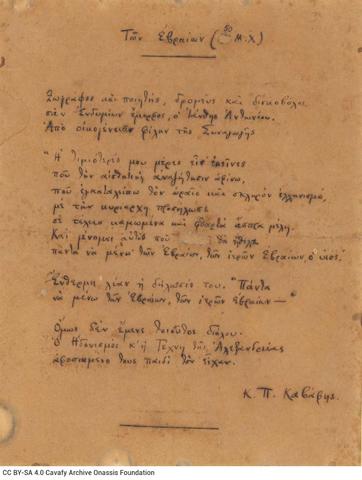 Των Εβραίων (50 Μ.Χ)
Ζωγράφος και ποιητής, δρομεύς και δισκοβόλος
σαν Ενδυμίων έμορφος, ο Ιάνθης Αντωνίου.
Από οικογένειαν φίλην της Συναγωγής
"Η τιμιότερές μου μέρες είν' εκείνες
που την αισθητική αναζήτησιν αφίνω,
που εγκαταλείπω τον ωραίο και σκληρόν ελληνισμό,
με την κυρίαρχη προσήλωσι
σε τέλεια καμωμένα και φθαρτά άσπρα μέλη.
Και γένομαι αυτός που θα ήθελα
πάντα να μένω· των Εβραίων, των ιερών Εβραίων, ο υιός.
Ένθερμη λίαν η δήλωσίς του. "Πάντα
να μένω των Εβραίων, των ιερών Εβραίων —"
Όμως δεν έμενε τοιούτος διόλου.
Ο Ηδονισμός κ' η Τέχνη της Αλεξανδρείας
αφοσιωμένο τους παιδί τον είχαν.
Κ. Π. Καβάφης.
CC BY-SA 4.0 Cavafy Archive Onassis Foundation